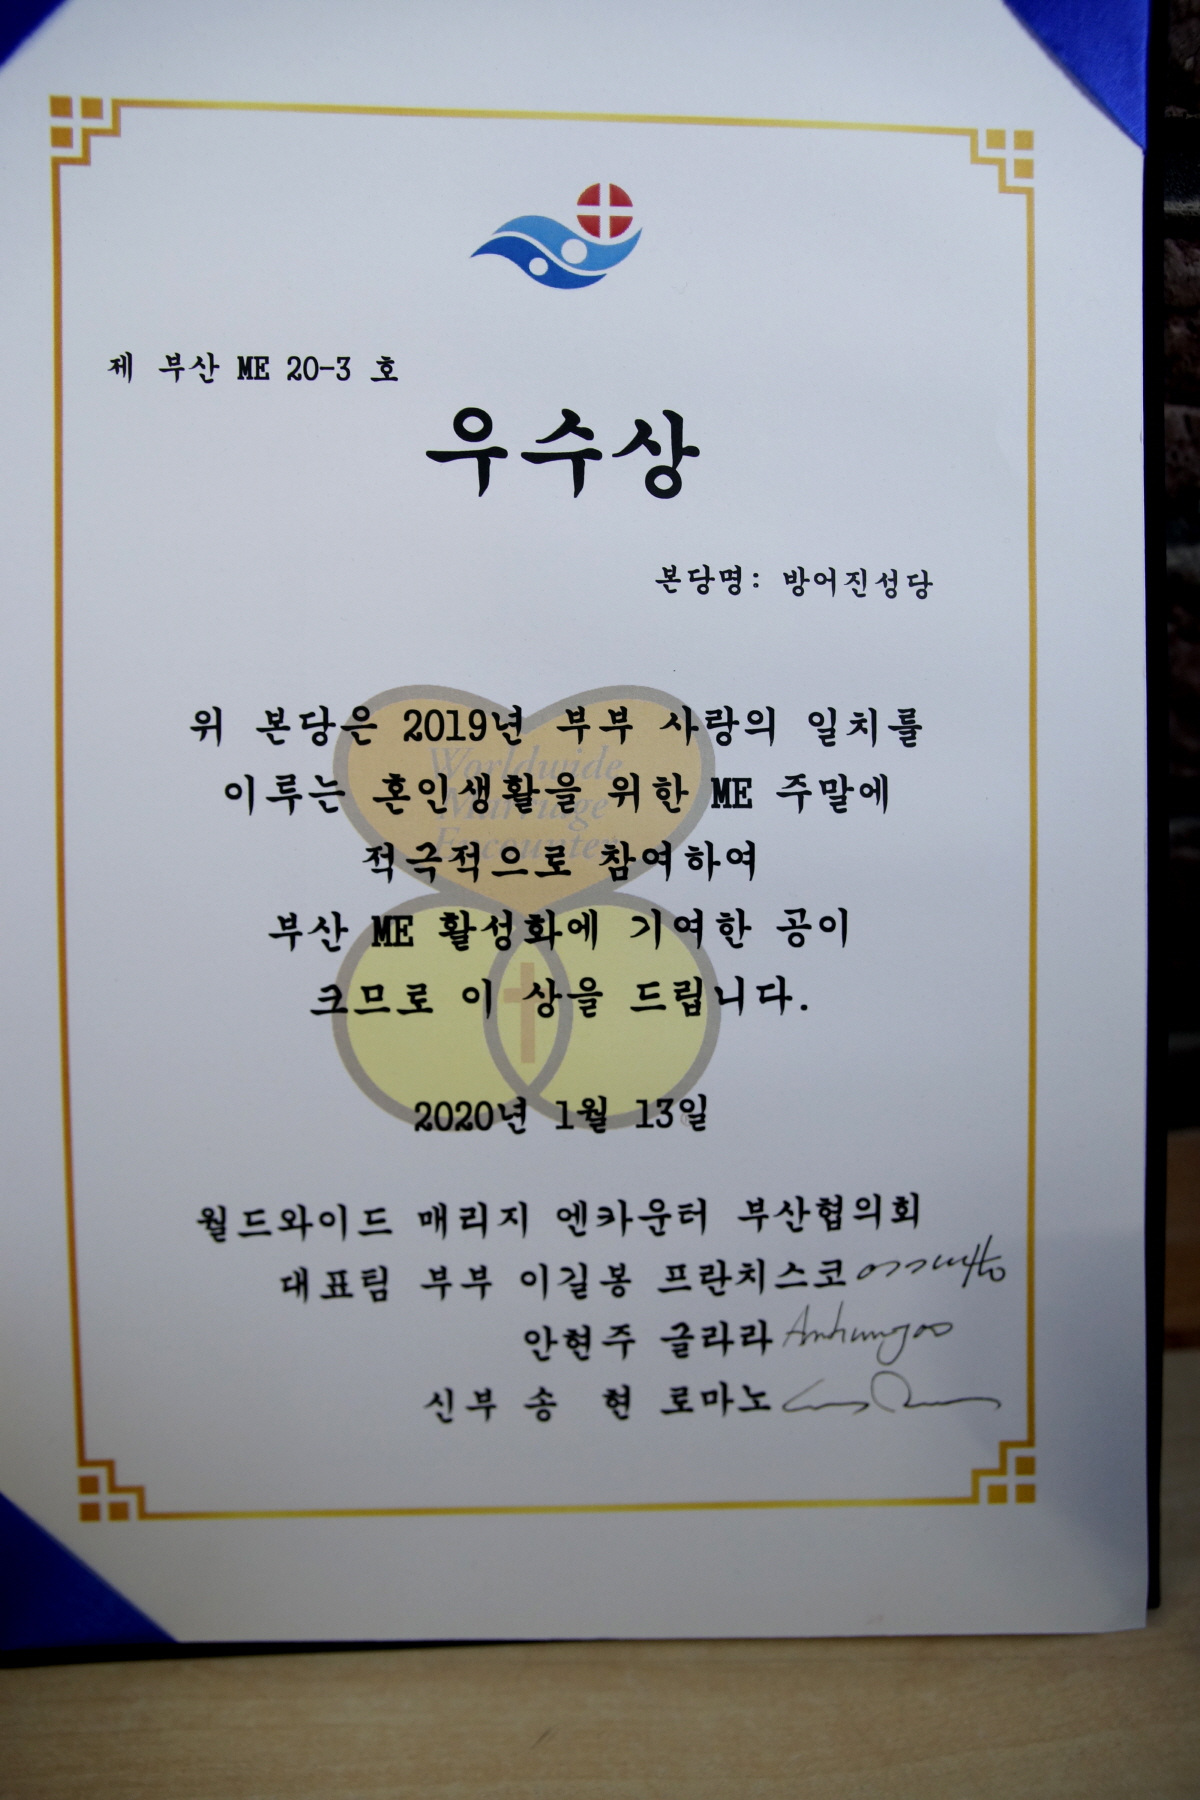 제 부산 ME 20-3 호
우수상
본당명: 방어진성당
위 본당은 2019년 부부 사랑의 일치를
이루는 혼인생활을 위한 ME 주말에
적극적으로 참여하여
부산 ME 활성화에 기여한 공이
크므로 이 상을 드립니다.
Worldwide
Marriage
Encounter
2020년 1월 13일
월드와이드 매리지 엔카운터 부산협의회
대표팀 부부 이길봉 프란치스코
안현주 글라라
신부 송 현 로마노